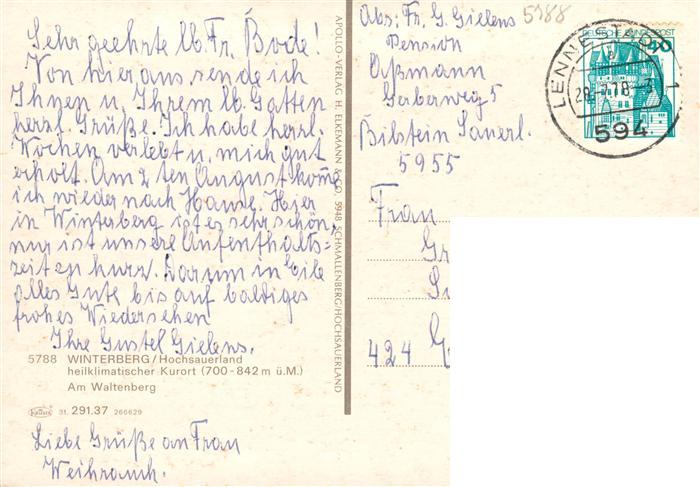 Sehr geehrte lb. Fr. Bode!
Von hier aus sende ich
Ihnen u. Ihrem lb. Gatten
herzl. Grüße. Ich habe herrl.
Wochen verlebt u. mich gut
erholt. Am 2ten August komme
ich wieder nach Hause. Hier
in Winterberg ist es sehr schön,
nur ist unsere Aufenthalts-
zeit zu kurz. Darum in Eile
alles Gute bis auf baldiges
frohes Wiedersehen
Ihre Gustel Gielens.
5788 WINTERBERG/Hochsauerland
heilklimatischer Kurort (700-842 m ü.M.)
Am Waltenberg
31. 291.37 266629
Liebe Grüße an Frau
Weihrauch.
APOLLO-VERLAG H. ELKEMANN & CO. 5948 SCHMALLENBERG/HOCHSAUERLAND
Abs: Fr. G. Gielens
Pension
Aßmann
Gerberweg 5
Bilstein Sauerl.
5955
5988
DEUTSCHE BUNDESPOST
40
LENNESTADT 1
594
Frau
424